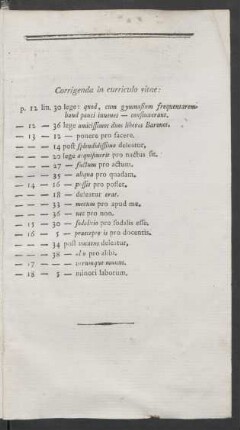 Corrigenda in curriculo vitae:
p. 12 lin. 30 lege: quod, cum gymnasium frequentarem
haud pauci iuuenes —
— 12 — 36 lege amicissimus dum liberos Barones.
— 13 — 12 — ponere pro facere.
— — — 14 post splendidissimo deleatur,
— — — 20 lege acquisiuerit pro nactus sit.
— — — 27 — factum pro actum.
— — — 35 — aliqua pro quadam.
— 14 — 16 — possis pro posset.
— — — 18 — deleatur erat.
— — — 33 — mecum pro apud me.
— — — 36 — nec pro non.
— 15 — 30 — pro sodalis esse.
— 16 — 5 — praecepto is pro docentis.
— — — 34 post deleatur,
— — — 38 — pro alibi.
— 17 — — — utrumque
— 18 — 5 — minori laborum.